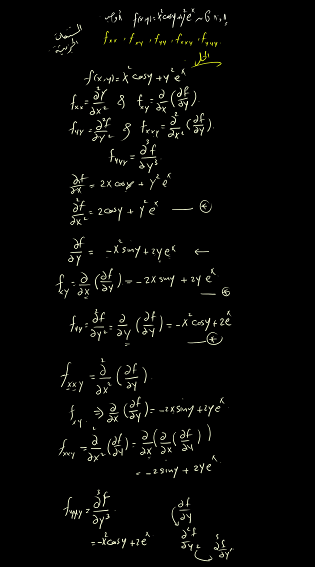 f(x,y)=x²cosy+y²eˣ
fxx , fxy , fyy , fxxy , fyyy
الحل
f(x,y)=x²cosy+y²eˣ
fxx=∂²f/∂x² & fxy=∂/∂x(∂f/∂y)
fyy=∂²f/∂y² & fxxy=∂²/∂x²(∂f/∂y)
fyyy=∂³f/∂y³
∂f/∂x=2xcosy+y²eˣ
∂²f/∂x²=2cosy+y²eˣ
∂f/∂y=-x²siny+2yeˣ ←
fxy=∂/∂x(∂f/∂y)=-2xsiny+2yeˣ
fyy=∂²f/∂y²=∂/∂y(∂f/∂y)=-x²cosy+2eˣ
fxxy=∂²/∂x²(∂f/∂y)
fxy⇒∂/∂x(∂f/∂y)=-2xsiny+2yeˣ
fxxy=∂²/∂x²(∂f/∂y)=∂/∂x(∂/∂x(∂f/∂y))
=-2siny+2yeˣ
fyyy=∂³f/∂y³ ∂f/∂y
=-x²cosy+2eˣ ∂²f/∂y² ∂³f/∂y³